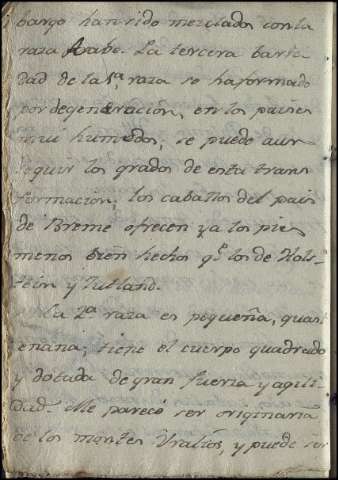 bargo han sido mezclados con la
raza Arabe. La tercera barie
dad de la 1ª raza se ha formado
por degeneración, en los paises
mui humedos, se puede aun
seguir los grados de esta trans
formación; los caballos del pais
de Breme ofrecen ya los pies
menos bien hechos qe. los de Hols-
tein y Jutland.
La 2ª raza es pequeña, quasi
enana; tiene el cuerpo quadrado
y dotada de gran fuerza y agili
dad. Me pareció ser originaria
de los montes Uralios, y puede ser